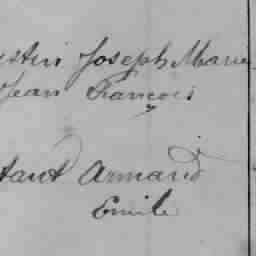 stin Joseph Marie
Jean Francois
tant Armand
Emile